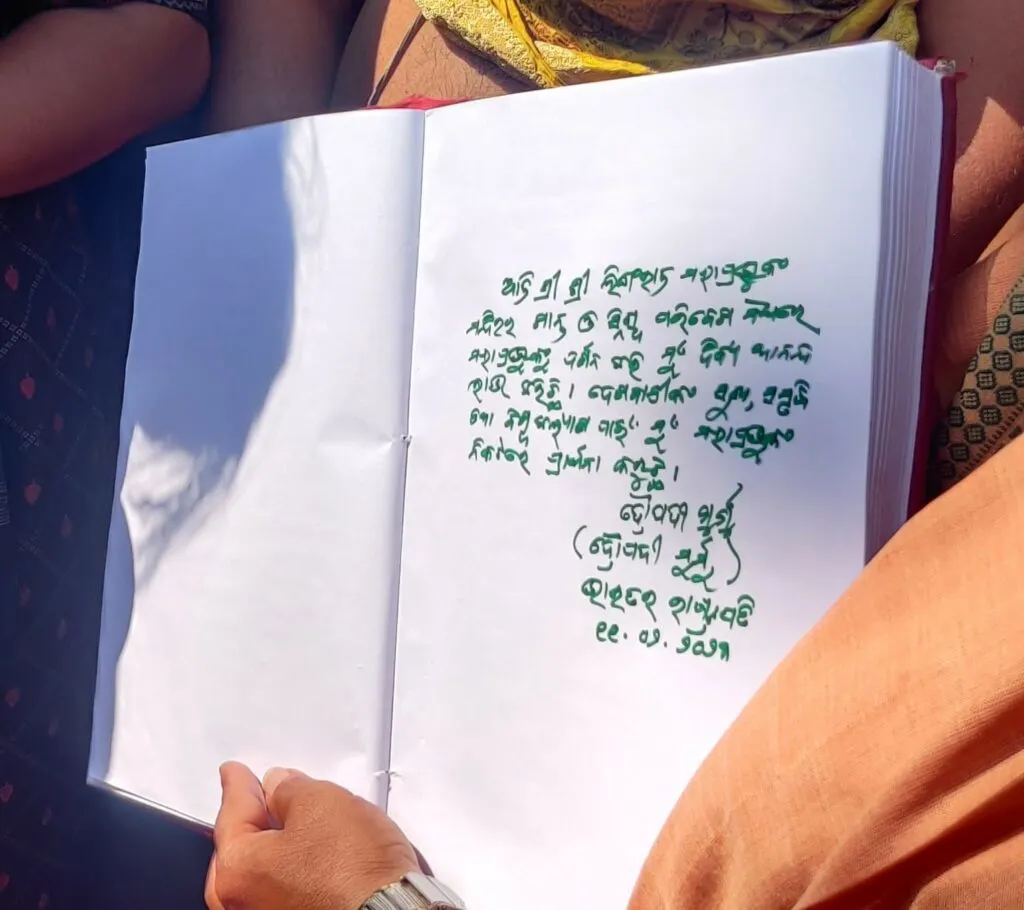 ଆଜି ଶ୍ରୀ ଶ୍ରୀ ଲିଙ୍ଗରାଜ ମହାପ୍ରଭୁଙ୍କ
ମନ୍ଦିରର ଶାନ୍ତ ଓ ସ୍ନିଗ୍ଧ ପରିବେଶ ମଧ୍ୟରେ
ମହାପ୍ରଭୁଙ୍କୁ ଦର୍ଶନ କରି ମୁଁ ଦିବ୍ୟ ଆନନ୍ଦ
ଲାଭ କରିଛି। ଦେଶବାସୀଙ୍କ ସୁଖ, ସମୃଦ୍ଧି
ଓ ବିଶ୍ୱକଲ୍ୟାଣ ପାଇଁ ମୁଁ ମହାପ୍ରଭୁଙ୍କ
ନିକଟରେ ପ୍ରାର୍ଥନା କରୁଛି।
ଦ୍ରୌପଦୀ ମୁର୍ମୁ
(ଦ୍ରୌପଦୀ ମୁର୍ମୁ)
ଭାରତର ରାଷ୍ଟ୍ରପତି
୧୧. ୦୨. ୨୦୨୩